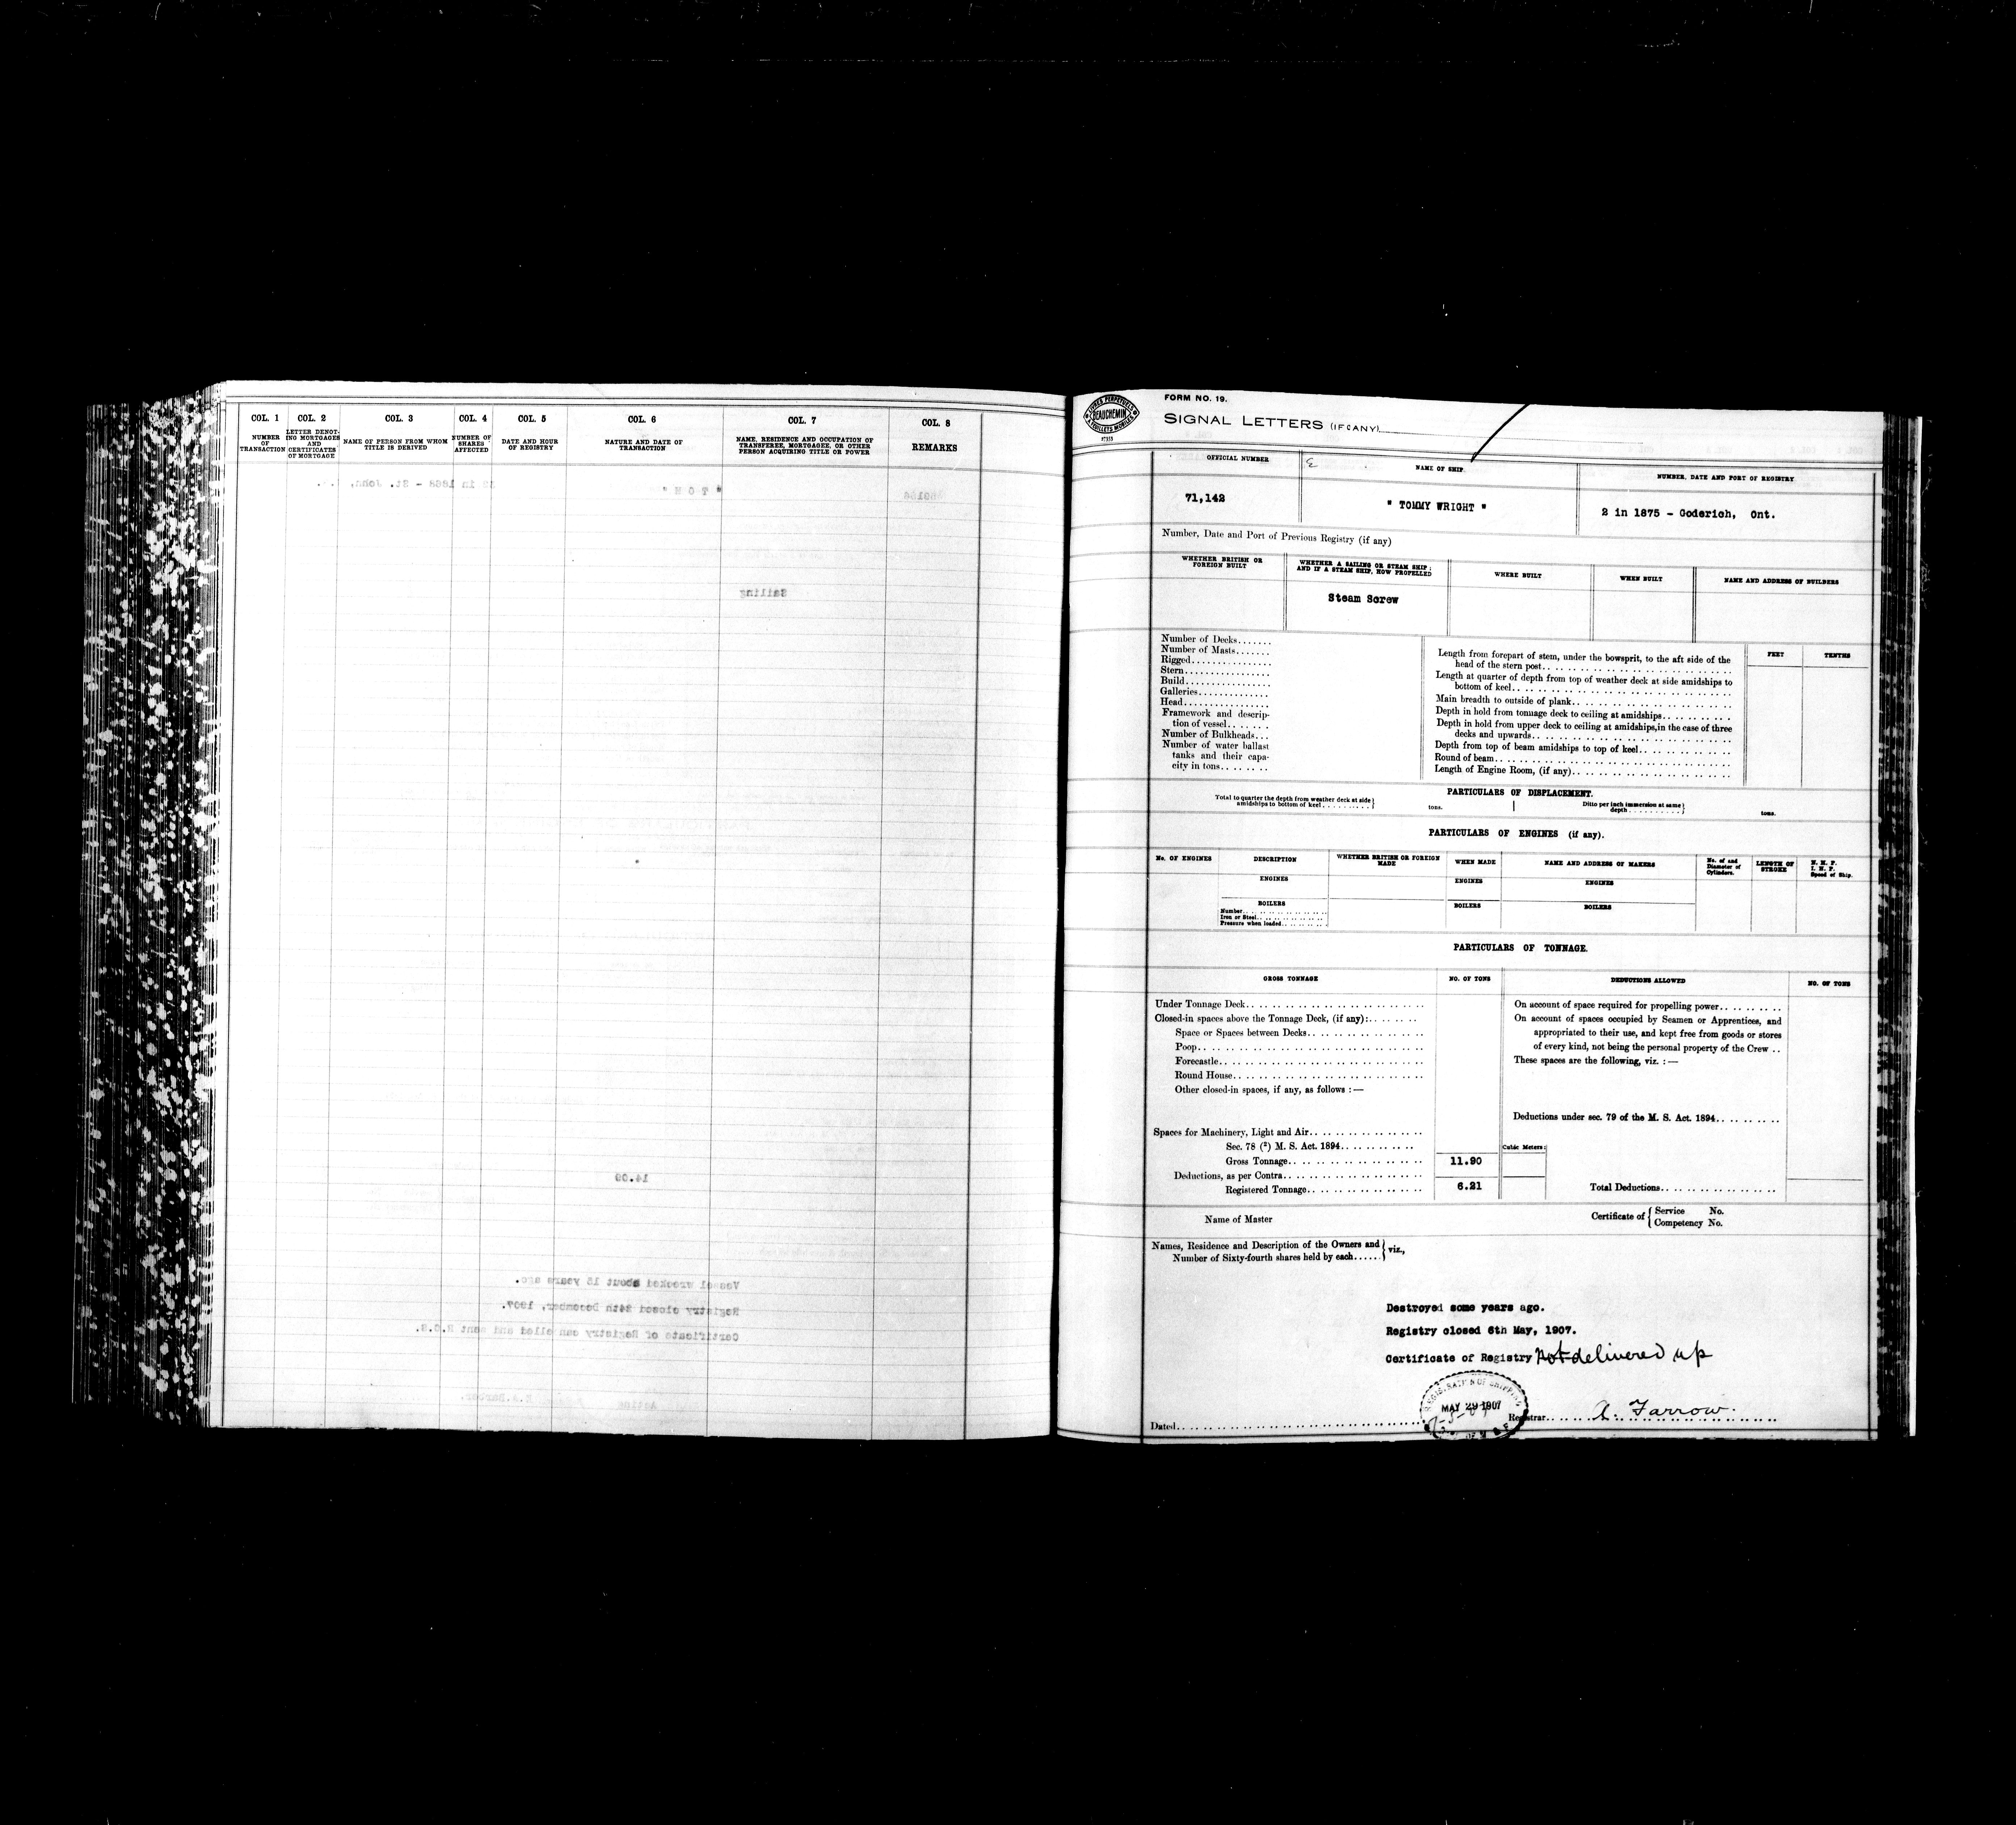 COL. 1
NUMBER OF TRANSACTION
COL. 2
LETTER DENOTING MORTGAGES AND CERTIFICATES OF MORTGAGE
COL. 3
NAME OF PERSON FROM WHOM TITLE IS DERIVED
COL. 4
NUMBER OF SHARES AFFECTED
COL. 5
DATE AND HOUR OF REGISTRY
COL. 6
NATURE AND DATE OF TRANSACTION
COL. 7
NAME, RESIDENCE AND OCCUPATION OF TRANSFEREE, MORTGAGEE, OR OTHER PERSON ACQUIRING TITLE OR POWER
COL. 8
REMARKS
in 1868 - St. John,
Sailing
14.09
Vessel wrecked about 15 years ago.
Registry closed 24th December, 1907.
Certificate of Registry cancelled and sent R.G.S.
Acting
BEAUCHEMIN
FORM NO. 19.
SIGNAL LETTERS (IF ANY)
OFFICIAL NUMBER
NAME OF SHIP.
NUMBER, DATE AND PORT OF REGISTRY
71,142
" TOMMY WRIGHT "
2 in 1875 - Goderich, Ont.
Number, Date and Port of Previous Registry (if any)
WHETHER BRITISH OR FOREIGN BUILT
WHETHER A SAILING OR STEAM SHIP; AND IF A STEAM SHIP, HOW PROPELLED
WHERE BUILT
WHEN BUILT
NAME AND ADDRESS OF BUILDERS
Steam Screw
Number of Decks.......
Number of Masts.......
Rigged................
Stern.................
Build.................
Galleries..............
Head.................
Framework and description of vessel.......
Number of Bulkheads...
Number of water ballast tanks and their capacity in tons........
FEET
TENTHS
Length from forepart of stem, under the bowsprit, to the aft side of the
head of the stern post
Length at quarter of depth from top of weather deck at side amidships to
bottom of keel
Main breadth to outside of plank
Depth in hold from tonnage deck to ceiling at amidships
Depth in hold from upper deck to ceiling at amidships, in the case of three
decks and upwards
Depth from top of beam amidships to top of keel
Round of beam
Length of Engine Room, (if any)
PARTICULARS OF DISPLACEMENT.
Total to quarter the depth from weather deck at side amidships to bottom of keel
tons.
Ditto per inch immersion at same depth
tons.
PARTICULARS OF ENGINES (if any).
No. OF ENGINES
DESCRIPTION
WHETHER BRITISH OR FOREIGN MADE
WHEN MADE
NAME AND ADDRESS OF MAKERS
No. of and Diameter of Cylinders.
LENGTH OF STROKE
N. H. P.
I. H. P.
Speed of Ship.
ENGINES
ENGINES
ENGINES
BOILERS
BOILERS
BOILERS
Number
Iron or Steel
Pressure when loaded
PARTICULARS OF TONNAGE.
GROSS TONNAGE
NO. OF TONS
DEDUCTIONS ALLOWED
NO. OF TONS
Under Tonnage Deck
Closed-in spaces above the Tonnage Deck, (if any):
Space or Spaces between Decks
Poop
Forecastle
Round House
Other closed-in spaces, if any, as follows :—
On account of space required for propelling power
On account of spaces occupied by Seamen or Apprentices, and
appropriated to their use, and kept free from goods or stores
of every kind, not being the personal property of the Crew
These spaces are the following, viz. :—
Deductions under sec. 79 of the M. S. Act. 1894
Spaces for Machinery, Light and Air
Sec. 78 (2) M. S. Act. 1894
Cubic Meters:
Gross Tonnage
11.90
Deductions, as per Contra
Registered Tonnage
6.21
Total Deductions
Name of Master
Certificate of { Service No.
Competency No.
Names, Residence and Description of the Owners and
Number of Sixty-fourth shares held by each...... } viz.,
Destroyed some years ago.
Registry closed 6th May, 1907.
Certificate of Registry Not delivered up
MAY 29 1907
Dated
Registrar
A. Farrow.